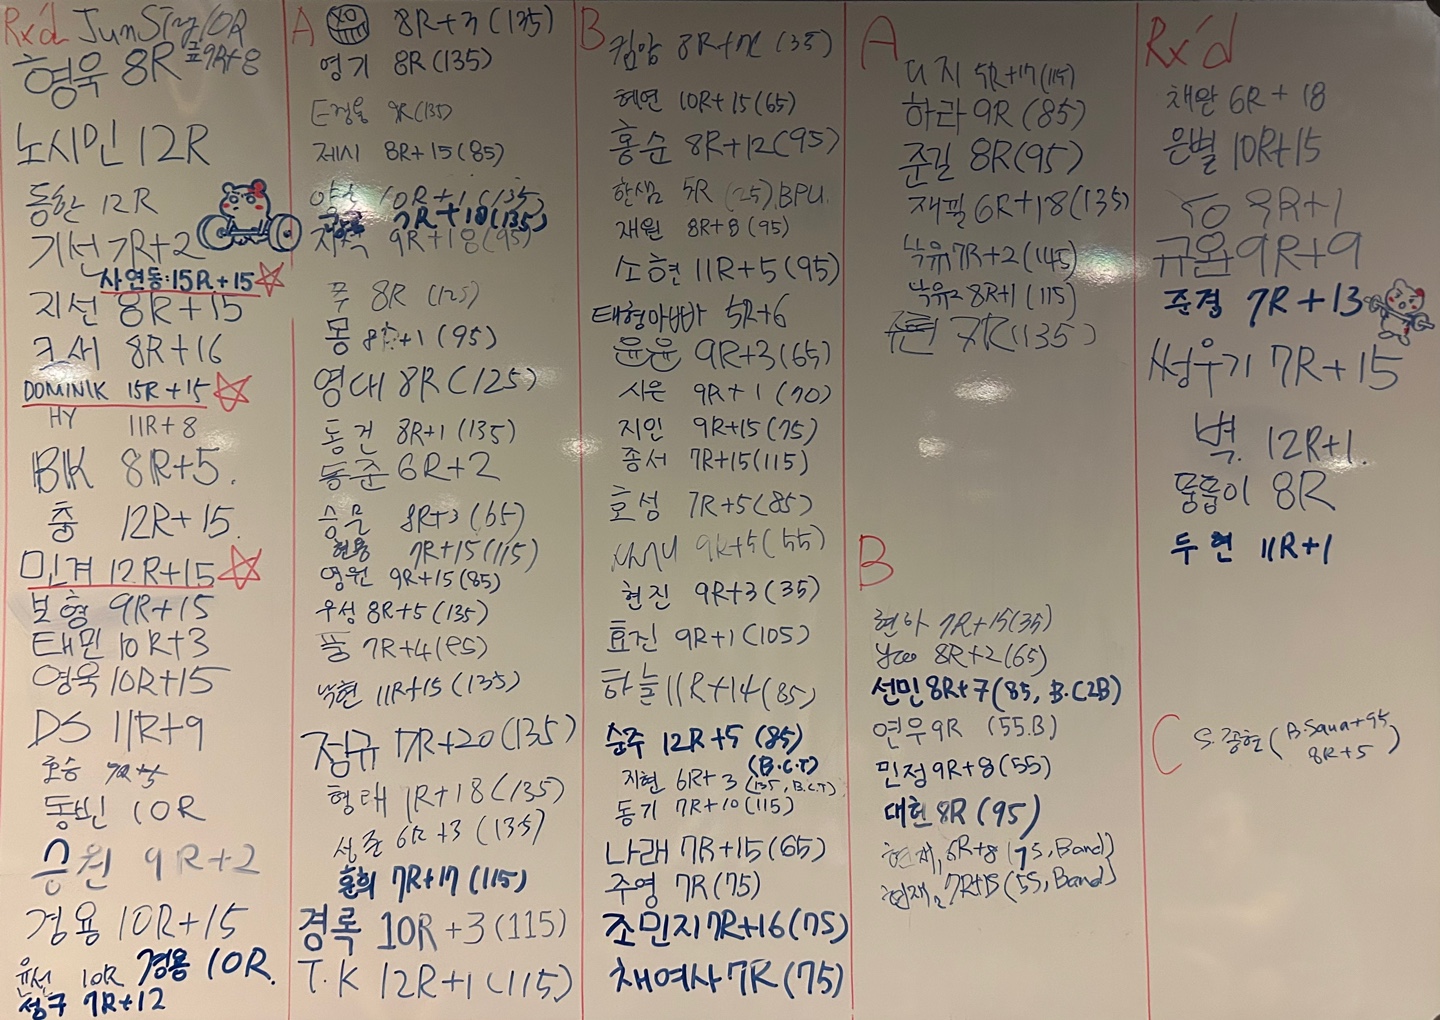 Rx'd JunSтy 10R
형욱 8R 프9R+8
노시민 12R
동한 12R
기선 7R+2
사연동:15R+15
지선 8R+15
크새 8R+16
DOMINIK 15R+15
HY 11R+8
BK 8R+5.
충 12R+15.
민겨 12R+15
보형 9R+15
태민 10R+3
영욱 10R+15
DS 11R+9
호승 7R+5
동빈 10R
승원 9R+2
경용 10R+15
윤선 10R 경용 10R.
성구 7R+12
A 8R+3 (135)
영기 8R (135)
9R (135)
제시 8R+15 (85)
10R+1 (135)
7R+18 (135)
9R+18 (95)
쭈 8R (125)
몽 8R+1 (95)
영대 8R (125)
동건 8R+1 (135)
동준 6R+2
승문 8R+3 (65)
현용 7R+15 (115)
영원 9R+15 (85)
우성 8R+5 (135)
풍 7R+4 (95)
낙현 11R+15 (135)
정규 7R+20 (135)
형태 7R+18 (135)
성준 6R+3 (135)
훈희 7R+17 (115)
경록 10R+3 (115)
T.K 12R+1 (115)
B 킴앙 8R+7 (35)
혜연 10R+15 (65)
홍순 8R+12 (95)
한샘 5R (25), BPU.
재원 8R+8 (95)
소현 11R+5 (95)
태형아빠 5R+6
윤윤 9R+3 (65)
시은 9R+1 (70)
지인 9R+15 (75)
종서 7R+15 (115)
호성 7R+5 (85)
9R+5 (55)
현진 9R+3 (35)
효진 9R+1 (105)
하늘 11R+14 (85)
순주 12R+5 (85)
(B.C.T)
지현 6R+3 (135, B.C.T)
동기 7R+10 (115)
나래 7R+15 (65)
주영 7R (75)
조민지 7R+16 (75)
채여사 7R (75)
A
디지 5R+17 (115)
하라 9R (85)
준길 8R (95)
재필 6R+18 (135)
낙유 7R+2 (145)
낙유2 8R+1 (115)
7R (135)
B
현아 7R+15 (35)
8R+2 (65)
선민 8R+7 (85, B.C2B)
연우 9R (55.B)
민정 9R+8 (55)
대헌 8R (95)
현재, 6R+8 (75, Band)
현재2 7R+13 (55, Band)
Rx'd
채완 6R+18
은별 10R+15
9R+1
규완 9R+9
준결 7R+13
썽우기 7R+15
벽. 12R+1.
뚱뚱이 8R
두현 11R+1
C S.종현 (B.Sana+95
8R+5)